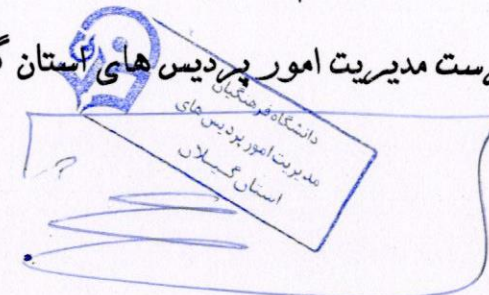 رست مدیریت امور پردیس های استان گ
دانشگاه فرهنگیان
مدیریت امور پردیس‌های
استان گیلان